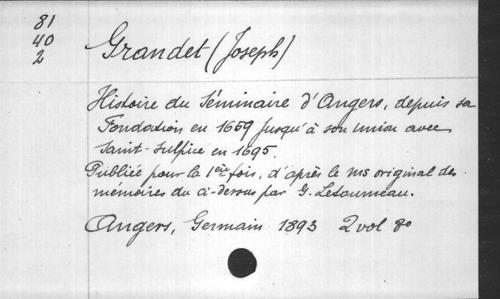 81
40
2
Grandet (Joseph)
Histoire du Séminaire d'Angers, depuis sa
Fondation en 1659 jusqu'à son union avec
Saint-Sulpice en 1695.
Publiée pour la 1ère fois, d'après le ms original des
mémoires du ci-dessus par G. Letourneau.
Angers, Germain 1893 2 vol 8o